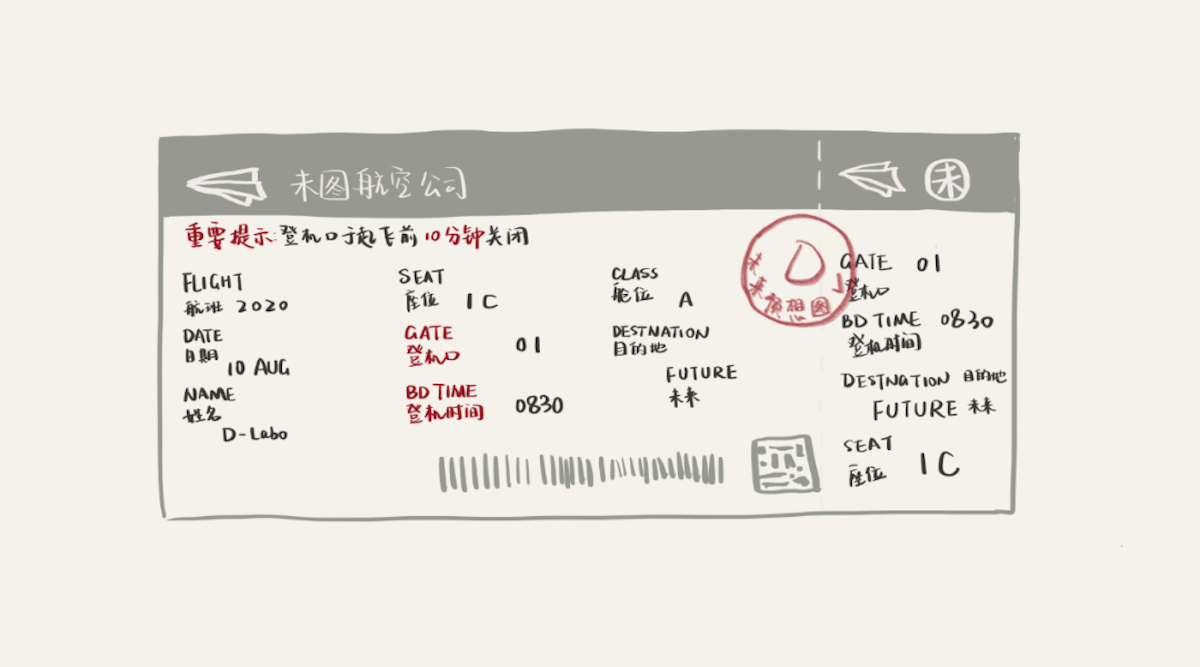 未图航空公司
未
重要提示:登机口于起飞前10分钟关闭
FLIGHT
航班 2020
SEAT
座位 1C
CLASS
舱位 A
DATE
日期
10 AUG
GATE
登机口 01
DESTNATION
目的地
FUTURE
未来
NAME
姓名
D-Labo
BD TIME
登机时间 0830
D
未来预想图
GATE 01
登机口
BD TIME 0830
登机时间
DESTNATION 目的地
FUTURE 未来
SEAT
座位 1C